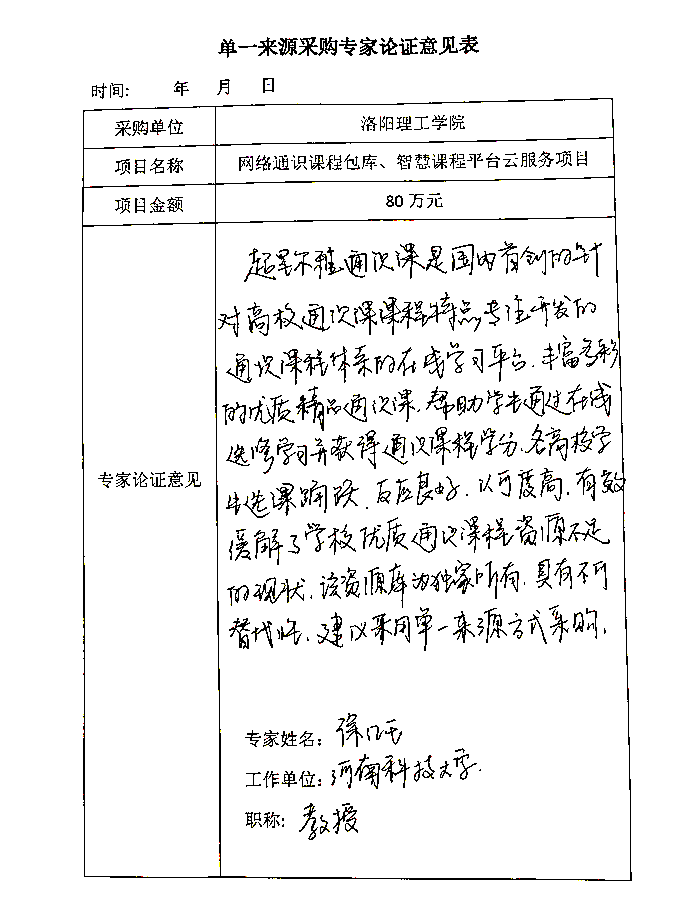 单一来源采购专家论证意见表
时间: 年 月 日
采购单位 洛阳理工学院
项目名称 网络通识课程包库、智慧课程平台云服务项目
项目金额 80万元
专家论证意见
超星尔雅通识课是国内首创的针
对高校通识课课程特点,专注开发的
通识课程体系的在线学习平台.丰富多彩
的优质精品通识课.帮助学生通过在线
选修学习并获得通识课程学分.各高校学
生选课踊跃.反应良好.认可度高.有效
缓解了学校优质通识课程资源不足
的现状.该资源库为独家所有.具有不可
替代性.建议采用单一来源方式采购.
专家姓名: 徐
工作单位: 河南科技大学.
职称: 教授